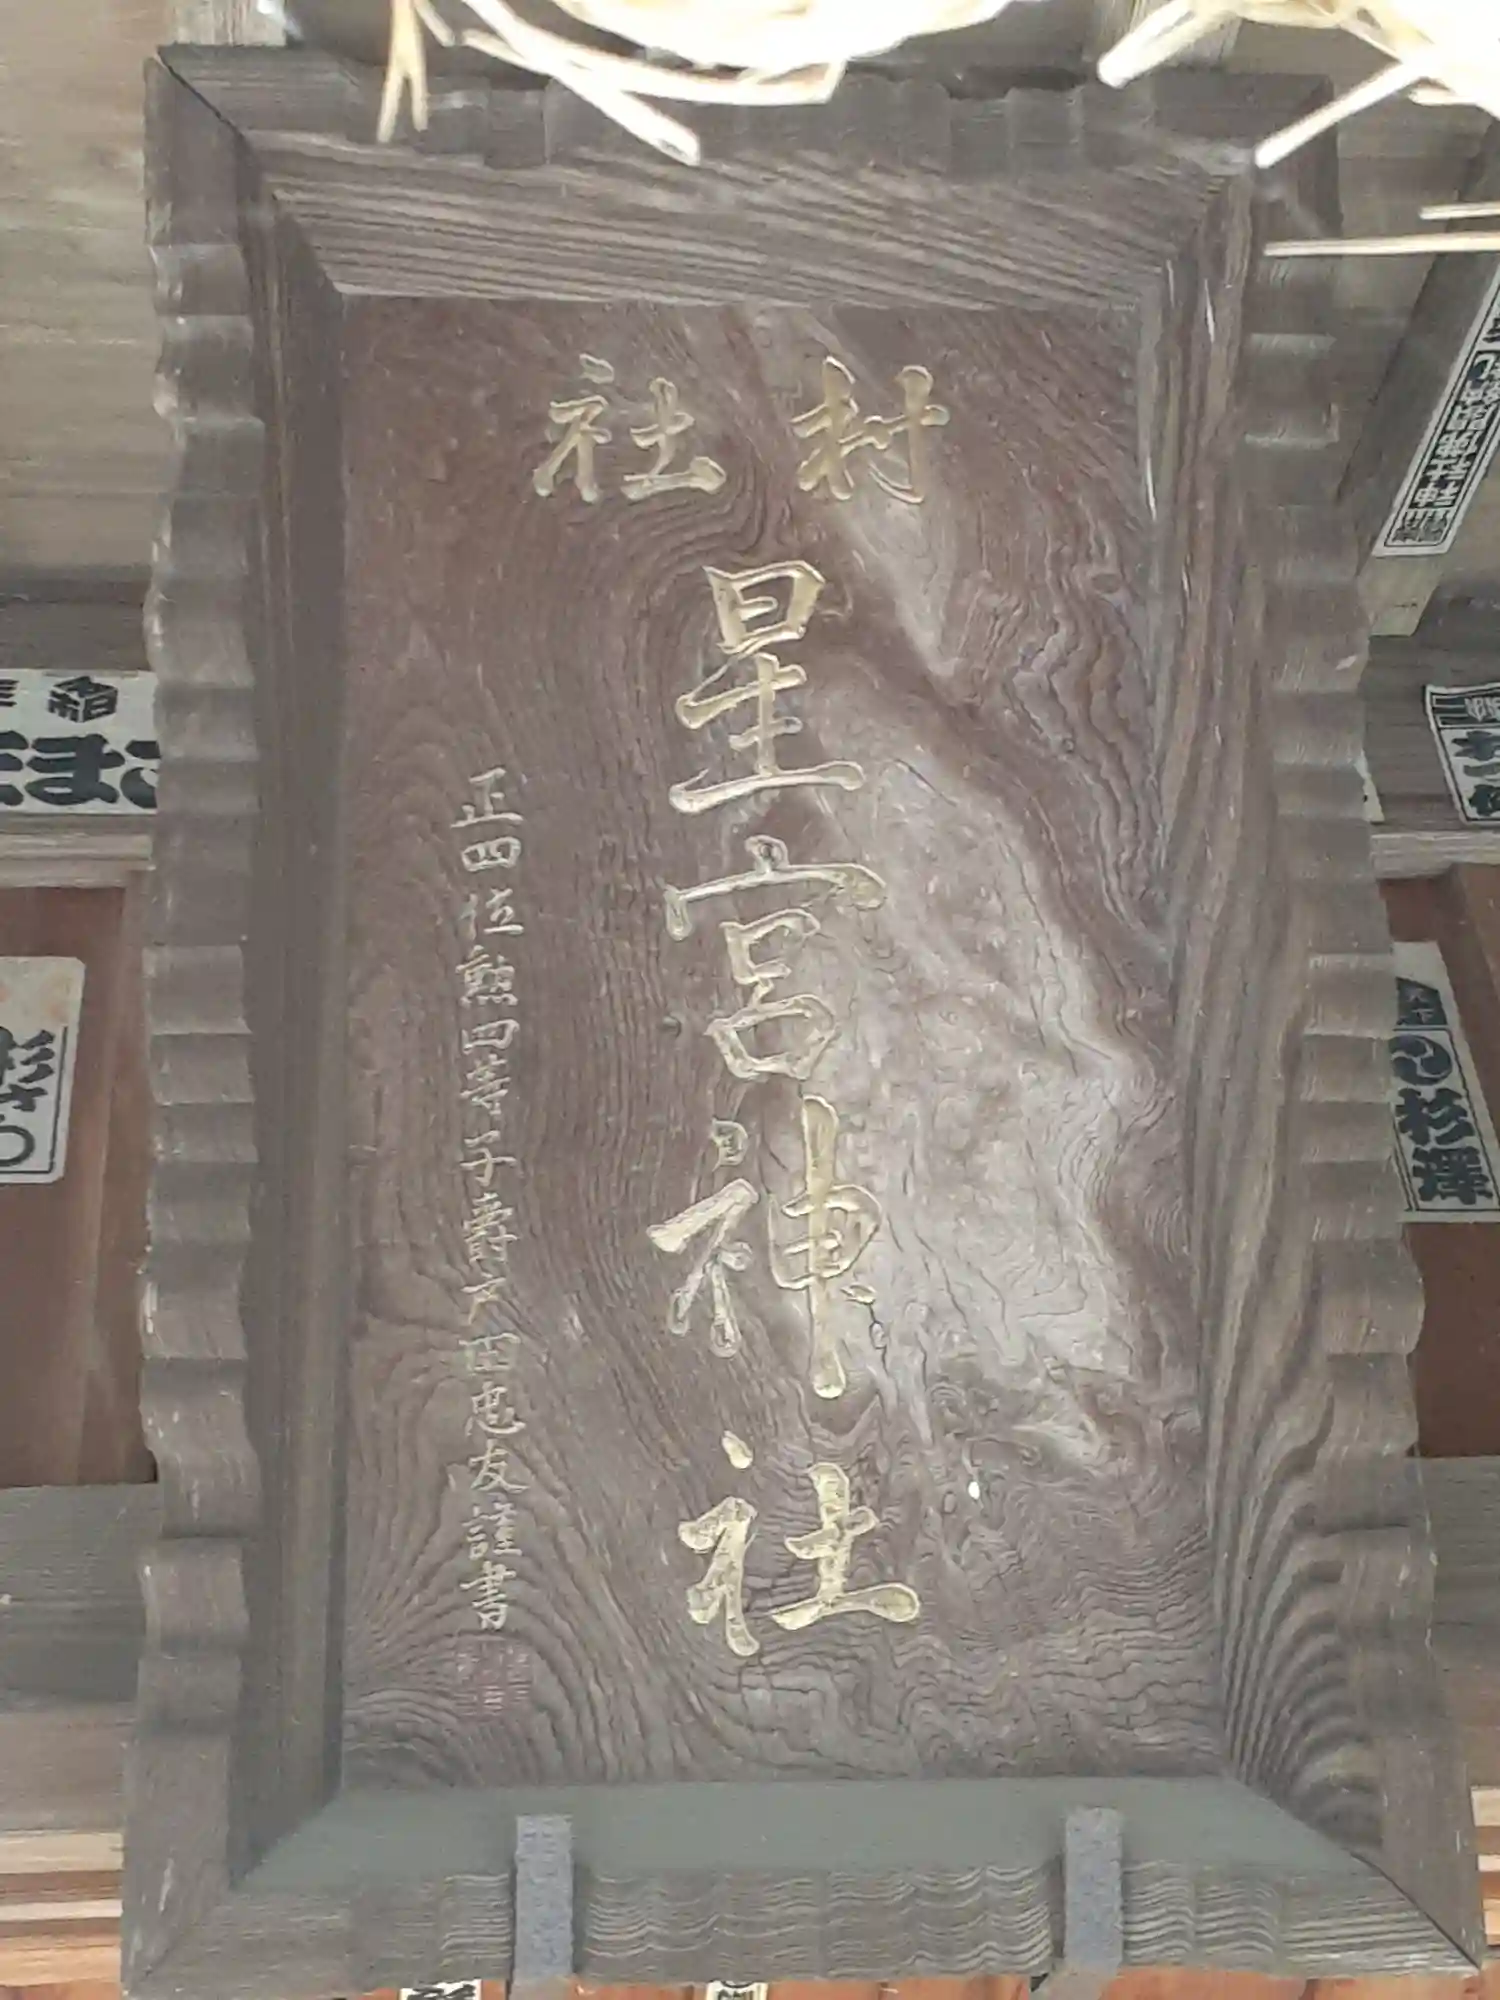 村社
星宮神社
正四位勲四等子爵戸田忠友謹書
杉澤